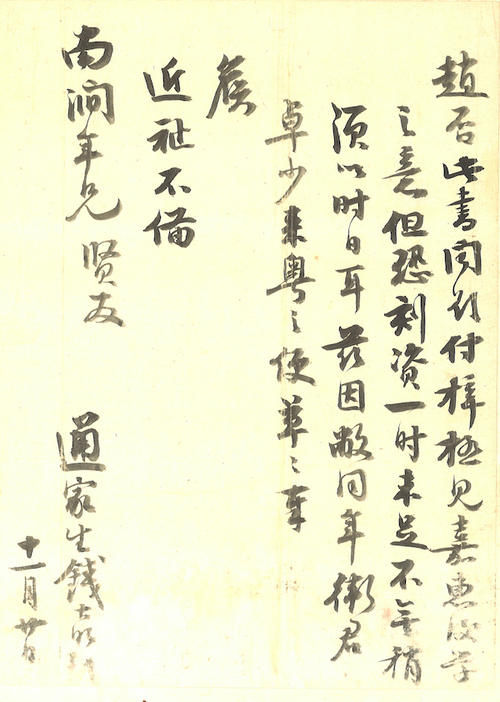 趙否此書聞付梓極見嘉惠後学
之意但恐刻資一时未足不無稍
須以时日耳茲因敝同年衛君
卓少来粤之便草〻奉
候
近祉不備
南澗年兄 賢友
通家生錢大昕
十一月廿日